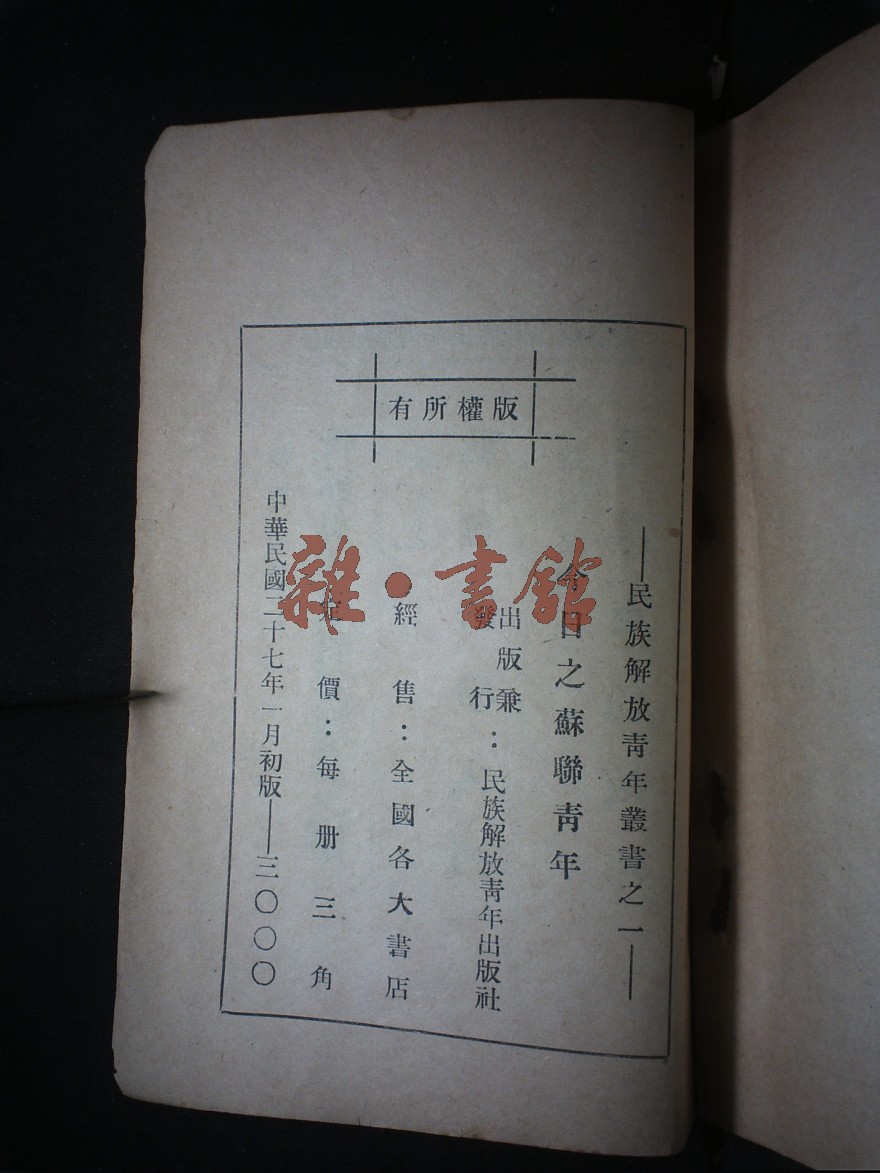 版權所有
——民族解放青年叢書之一——
今日之蘇聯青年
出版兼
發行：民族解放青年出版社
經售：全國各大書店
定價：每册三角
中華民國二十七年一月初版——三〇〇〇
雜·書館